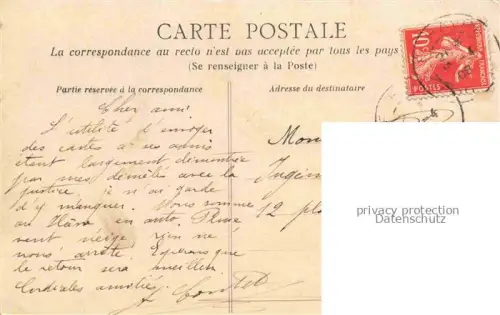 CARTE POSTALE
La correspondance au recto n'est pas acceptée par tous les pays
(Se renseigner à la Poste)
Partie réservée à la correspondance
Adresse du destinataire
Cher ami
L'utilité d'envoyer
des cartes à ses amis
étant largement démontrée
par mes démêlés avec la
justice, je n'ai garde
d'y manquer. Nous sommes
au Hâvre en auto. Pluie
vent neige rien ne
nous arrête. Espérons que
le retour sera meilleur.
Cordiales amitiés
Mon
Ingén
12 pla
10
POSTES
privacy protection
Datenschutz